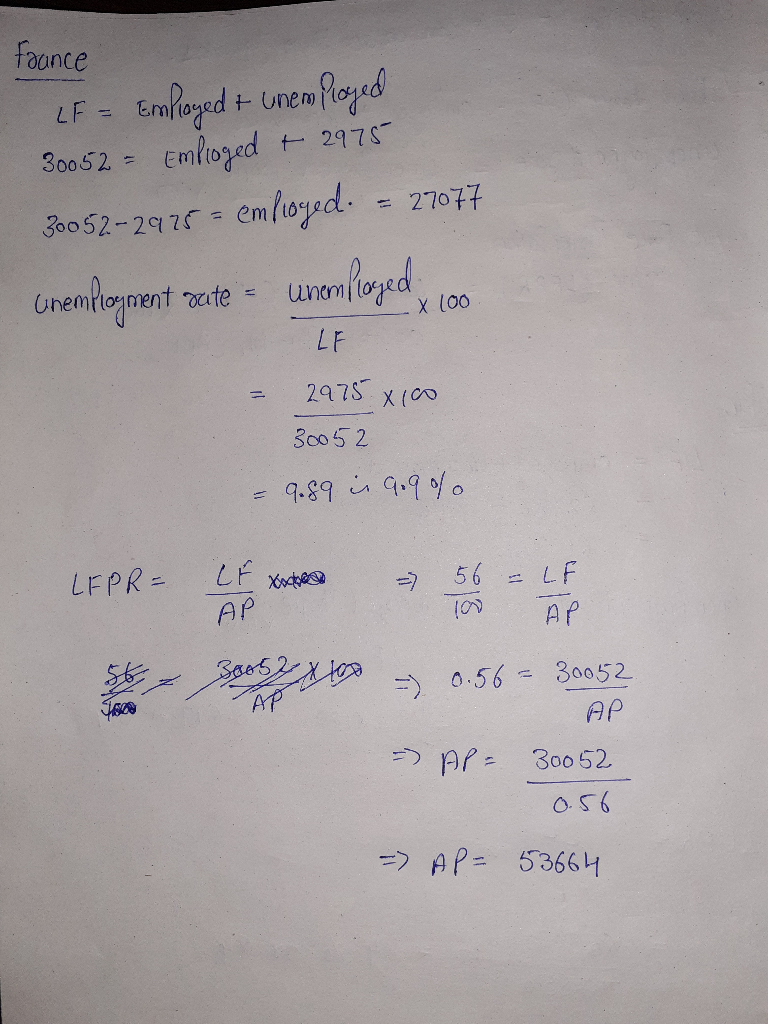 France
LF = Employed + Unemployed
30052 = Employed + 2975
30052-2975 = employed. = 27077
Unemployment rate = unemployed x 100
LF
= 2975 x 100
30052
= 9.89 is 9.9%
LFPR = LF => 56 = LF
AP 100 AP
56 = 30052 x 100 => 0.56 = 30052
AP AP
=> AP = 30052
0.56
=> AP = 53664